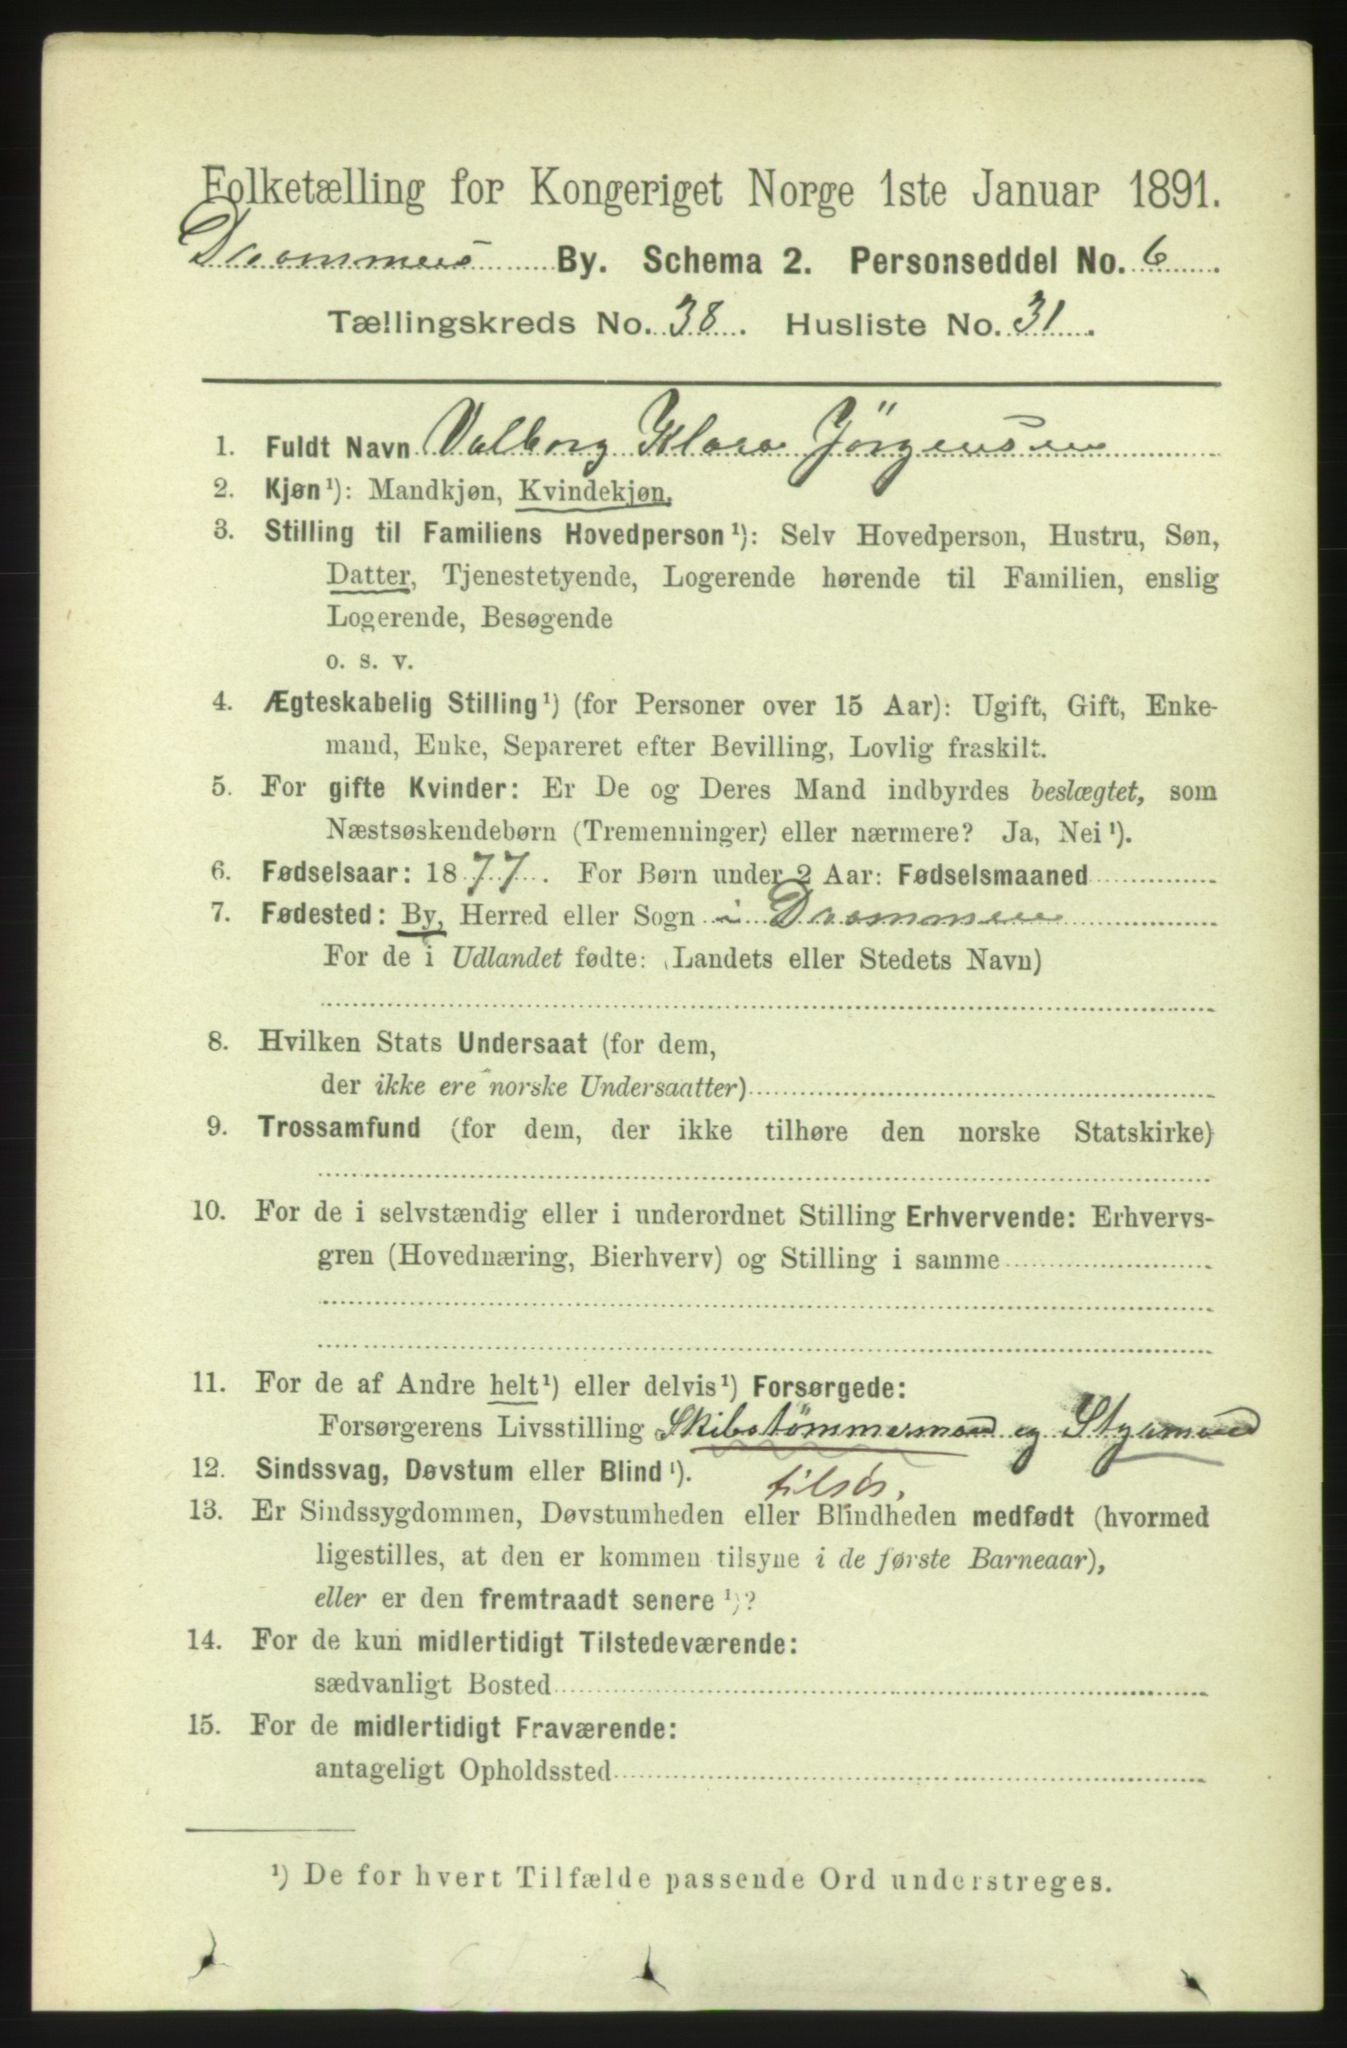 Folketælling for Kongeriget Norge 1ste Januar 1891.
Drammens By. Schema 2. Personseddel No. 6.
Tællingskreds No. 38. Husliste No. 31.
1. Fuldt Navn Valborg Klara Jörgensen
2. Kjøn¹): Mandkjøn, Kvindekjøn.
3. Stilling til Familiens Hovedperson¹): Selv Hovedperson, Hustru, Søn,
Datter, Tjenestetyende, Logerende hørende til Familien, enslig
Logerende, Besøgende
o. s. v.
4. Ægteskabelig Stilling¹) (for Personer over 15 Aar): Ugift, Gift, Enke-
mand, Enke, Separeret efter Bevilling, Lovlig fraskilt.
5. For gifte Kvinder: Er De og Deres Mand indbyrdes beslægtet, som
Næstsøskendebørn (Tremenninger) eller nærmere? Ja, Nei¹).
6. Fødselsaar: 1877. For Børn under 2 Aar: Fødselsmaaned
7. Fødested: By, Herred eller Sogn i Drammen
For de i Udlandet fødte: (Landets eller Stedets Navn)
8. Hvilken Stats Undersaat (for dem,
der ikke ere norske Undersaatter)
9. Trossamfund (for dem, der ikke tilhøre den norske Statskirke)
10. For de i selvstændig eller i underordnet Stilling Erhvervende: Erhvervs-
gren (Hovednæring, Bierhverv) og Stilling i samme
11. For de af Andre helt¹) eller delvis¹) Forsørgede:
Forsørgerens Livsstilling Skibstømmermand og Styrmand
tilsös.
12. Sindssvag, Døvstum eller Blind¹).
13. Er Sindssygdommen, Døvstumheden eller Blindheden medfødt (hvormed
ligestilles, at den er kommen tilsyne i de første Barneaar),
eller er den fremtraadt senere¹)?
14. For de kun midlertidigt Tilstedeværende:
sædvanligt Bosted
15. For de midlertidigt Fraværende:
antageligt Opholdssted
¹) De for hvert Tilfælde passende Ord understreges.